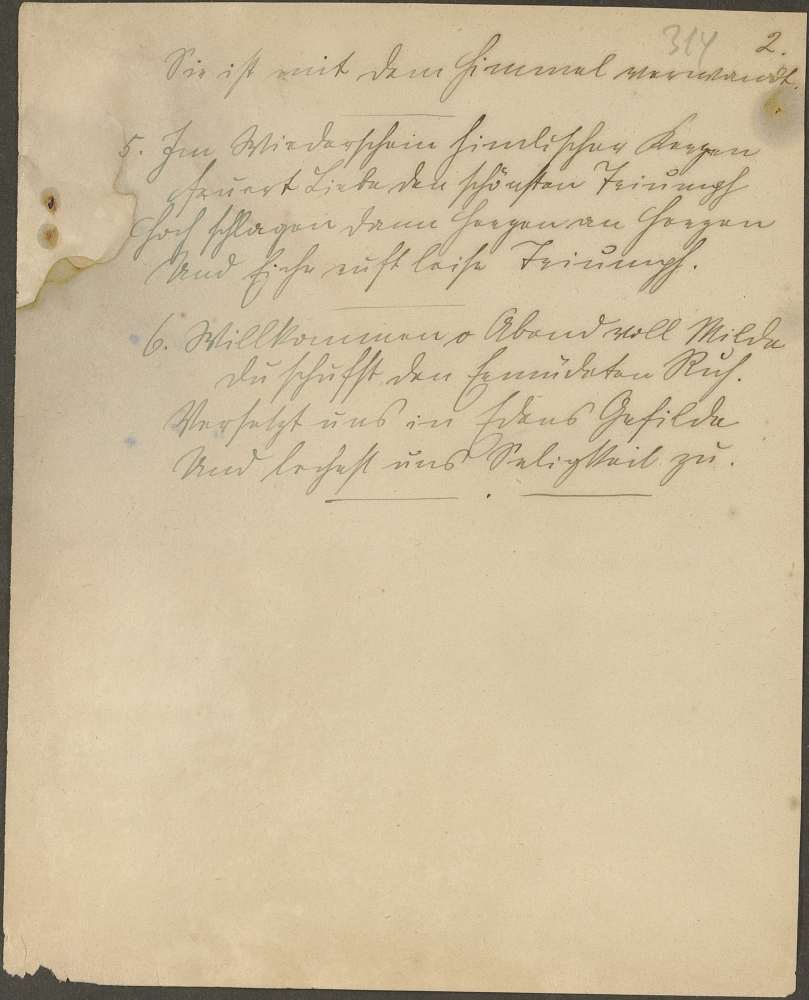 314 2.
Sie ist mit dem Himmel verwandt.
5. Im Wiederschein himlischer Kerzen
feuert Liebe den schönsten Triumph
Hoch schlagen dann Herzen an Herzen
Und Eiche ruft leise Triumph.
6. Willkommen o Abend voll Milde
Du schufst den Ermüdeten Ruh.
Versetzt uns in Edens Gefilde
Und lechest uns Seligkeit zu.